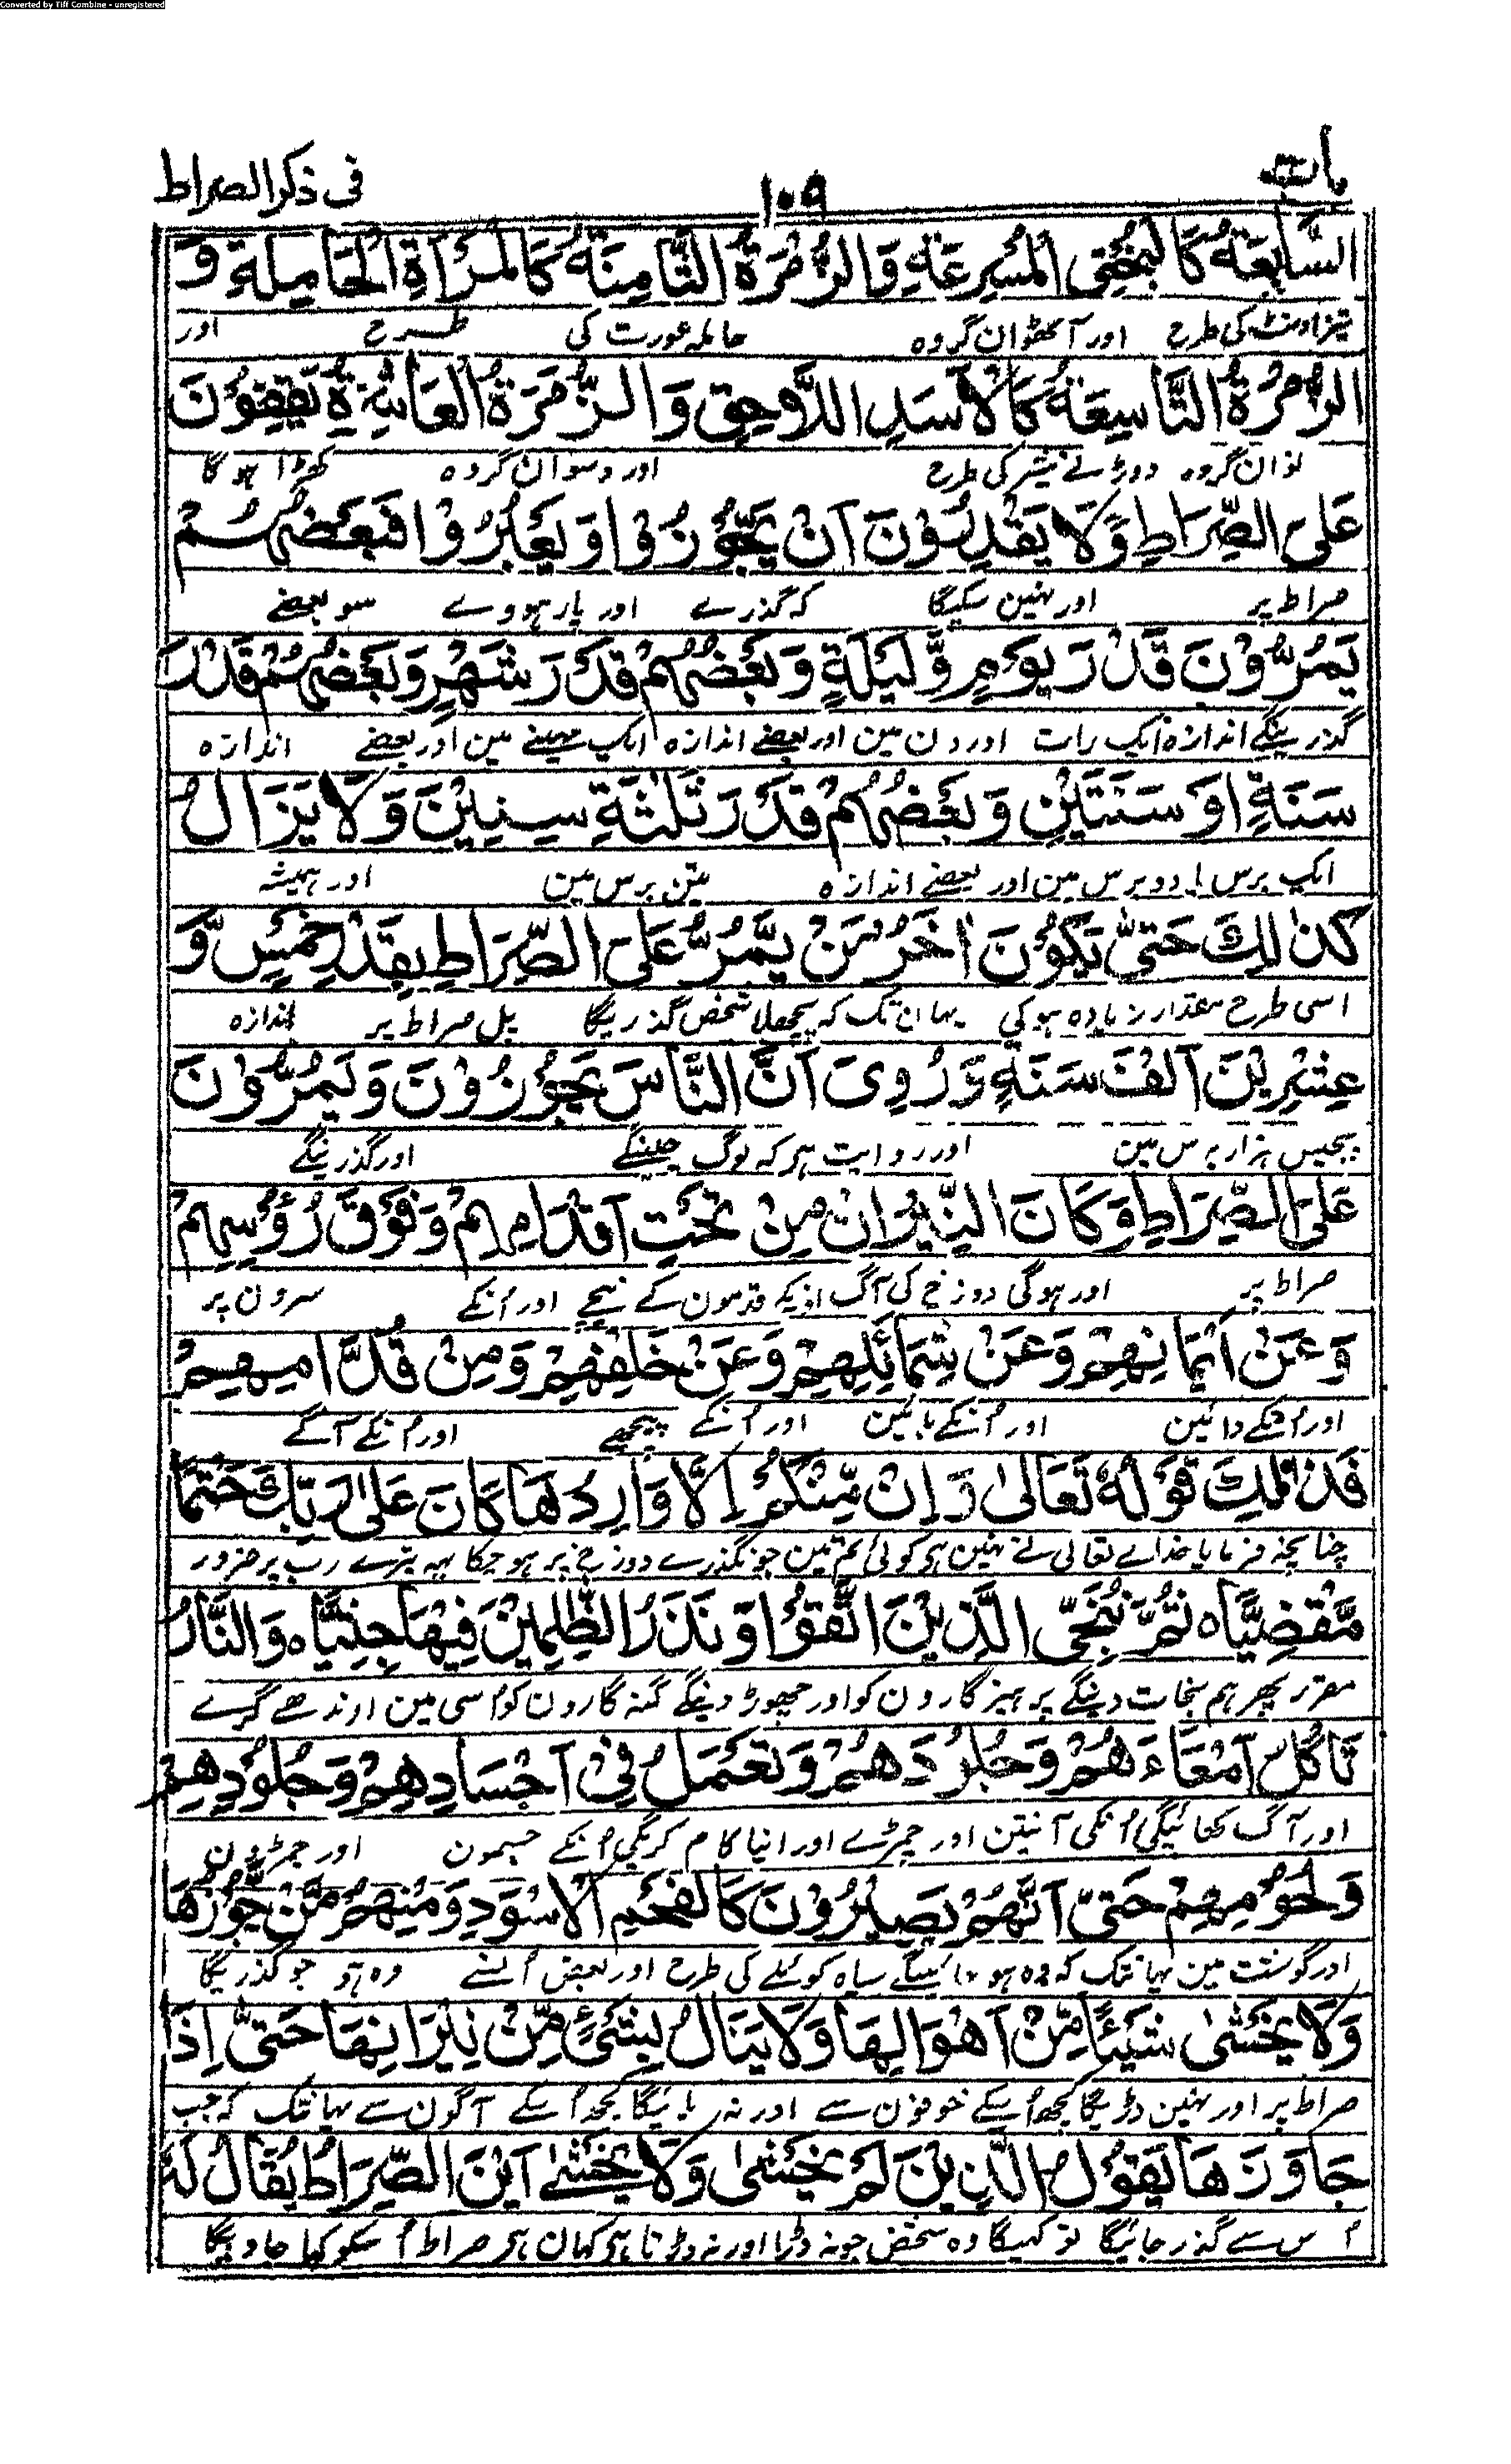 Converted by Tiff Combine - unregistered
باب ١٠٩ فی ذکر الصراط
السَّابِعَةُ كَالْبُخْتِي الْمُسْرِعَةِ وَالزُّمْرَةُ الثَّامِنَةُ كَالْمَرْأَةِ الْحَامِلَةِ وَ
تیز اونٹ کی طرح اور آٹھوان گروہ حاملہ عورت کی طرح اور
الزُّمْرَةُ التَّاسِعَةُ كَالْاَسَدِ اللَّاحِقِ وَالزُّمْرَةُ الْعَاشِرَةُ يَقِفُوْنَ
نوان گروہ دوڑنے شیر کی طرح اور دسوان گروہ کھڑا ہو گا
عَلَى الصِّرَاطِ وَلَا يَقْدِرُوْنَ اَنْ يَجُوْزُوْا وَيَعْبُرُوْا فَبَعْضُهُمْ
صراط پر اور نہین سکیگا کہ گذرے اور پار ہووے سو بعضے
يَمُرُّوْنَ قَدْرَ يَوْمٍ وَّلَيْلَةٍ وَبَعْضُهُمْ قَدْرَ شَهْرٍ وَبَعْضُهُمْ قَدْرَ
گذرینگے اندازہ ایک رات اور دن مین اور بعضے اندازہ ایک مہینے مین اور بعضے اندازہ
سَنَةٍ اَوْ سَنَتَيْنِ وَبَعْضُهُمْ قَدْرَ ثَلٰثَةِ سِنِيْنَ وَلَا يَزَالُ
ایک برس یا دو برس مین اور بعضے اندازہ تین برس مین اور ہمیشہ
كَذٰلِكَ حَتّٰى يَكُوْنَ اٰخَرُ مَنْ يَّمُرُّ عَلَى الصِّرَاطِ بِقَدْرِ خَمْسٍ وَّ
اسی طرح مقدار زیادہ ہوگی یہان تک کہ پچھلا شخص گذریگا پل صراط پر اندازہ
عِشْرِيْنَ اَلْفَ سَنَةٍ وَرُوِىَ اَنَّ النَّاسَ يَجُوْزُوْنَ وَيَمُرُّوْنَ
پچیس ہزار برس مین اور روایت ہی کہ لوگ چلینگے اور گذرینگے
عَلَى الصِّرَاطِ وَكَانَ النِّيْرَانُ مِنْ تَحْتِ اَقْدَامِهِمْ وَفَوْقَ رُؤُسِهِمْ
صراط پر اور ہوگی دوزخ کی آگ انکے قدمون کے نیچے اور اُنکے سرون پر
وَعَنْ اَيْمَانِهِمْ وَعَنْ شِمَائِلِهِمْ وَعَنْ خَلْفِهِمْ وَمِنْ قُدَّامِهِمْ
اور اُنکے دائین اور اُنکے بائین اور اُنکے پیچھے اور اُنکے آگے
فَذٰلِكَ قَوْلُهٗ تَعَالٰى وَاِنْ مِّنْكُمْ اِلَّا وَارِدُهَا كَانَ عَلٰى رَبِّكَ حَتْمًا
چنانچہ فرمایا خداے تعالی نے نہین ہی کوئی تم مین جو نگذرے دوزخ پر ہو چکا یہہ تیرے رب پر ضرور
مَّقْضِيًّا ہ ثُمَّ نُنَجِّى الَّذِيْنَ اتَّقَوْا وَنَذَرُ الظّٰلِمِيْنَ فِيْهَا جِثِيًّا ہ وَالنَّارُ
مقرر پھر ہم نجات دینگے پرہیزگارون کو اور چھوڑ دینگے گنہگارون کو اُسی مین اوندھے گرے
تَاْكُلُ اَمْعَاءَهُمْ وَجُلُوْدَهُمْ وَتَعْمَلُ فِىْ اَجْسَادِهِمْ وَجُلُوْدِهِمْ
اور آگ کھائیگی اُنکی آنتین اور چمڑے اور اپنا کام کریگی اُنکے جسمون اور چمڑون
وَلُحُوْمِهِمْ حَتّٰى اَنَّهُمْ يَصِيْرُوْنَ كَالْفَحْمِ الْاَسْوَدِ وَمِنْهُمْ مَّنْ يَّجُوْزُهَا
اور گوشت مین یہانتک کہ وہ ہو جائینگے سیاہ کوئلے کی طرح اور بعض اُنسے وہ ہی جو گذریگا
وَلَا يَخْشٰى شَيْئًا مِّنْ اَهْوَالِهَا وَلَا يَنَالُ بِشَىْءٍ مِّنْ نِيْرَانِهَا حَتّٰى اِذَا
صراط پر اور نہین ڈریگا کچھ اُسکے خوفون سے اور نہ پائیگا کچھ اُسکے آگون سے یہانتک کہ جب
جَاوَزَهَا يَقُوْلُ الَّذِيْنَ لَمْ يَخْشٰى وَلَا يَخْشٰى اَيْنَ الصِّرَاطُ يُقَالُ لَهٗ
اُس سے گذر جائیگا تو کہیگا وہ شخص جو نہ ڈرا اور نہ ڈرتا ہی کہان ہی صراط اُسکو کہا جاویگا